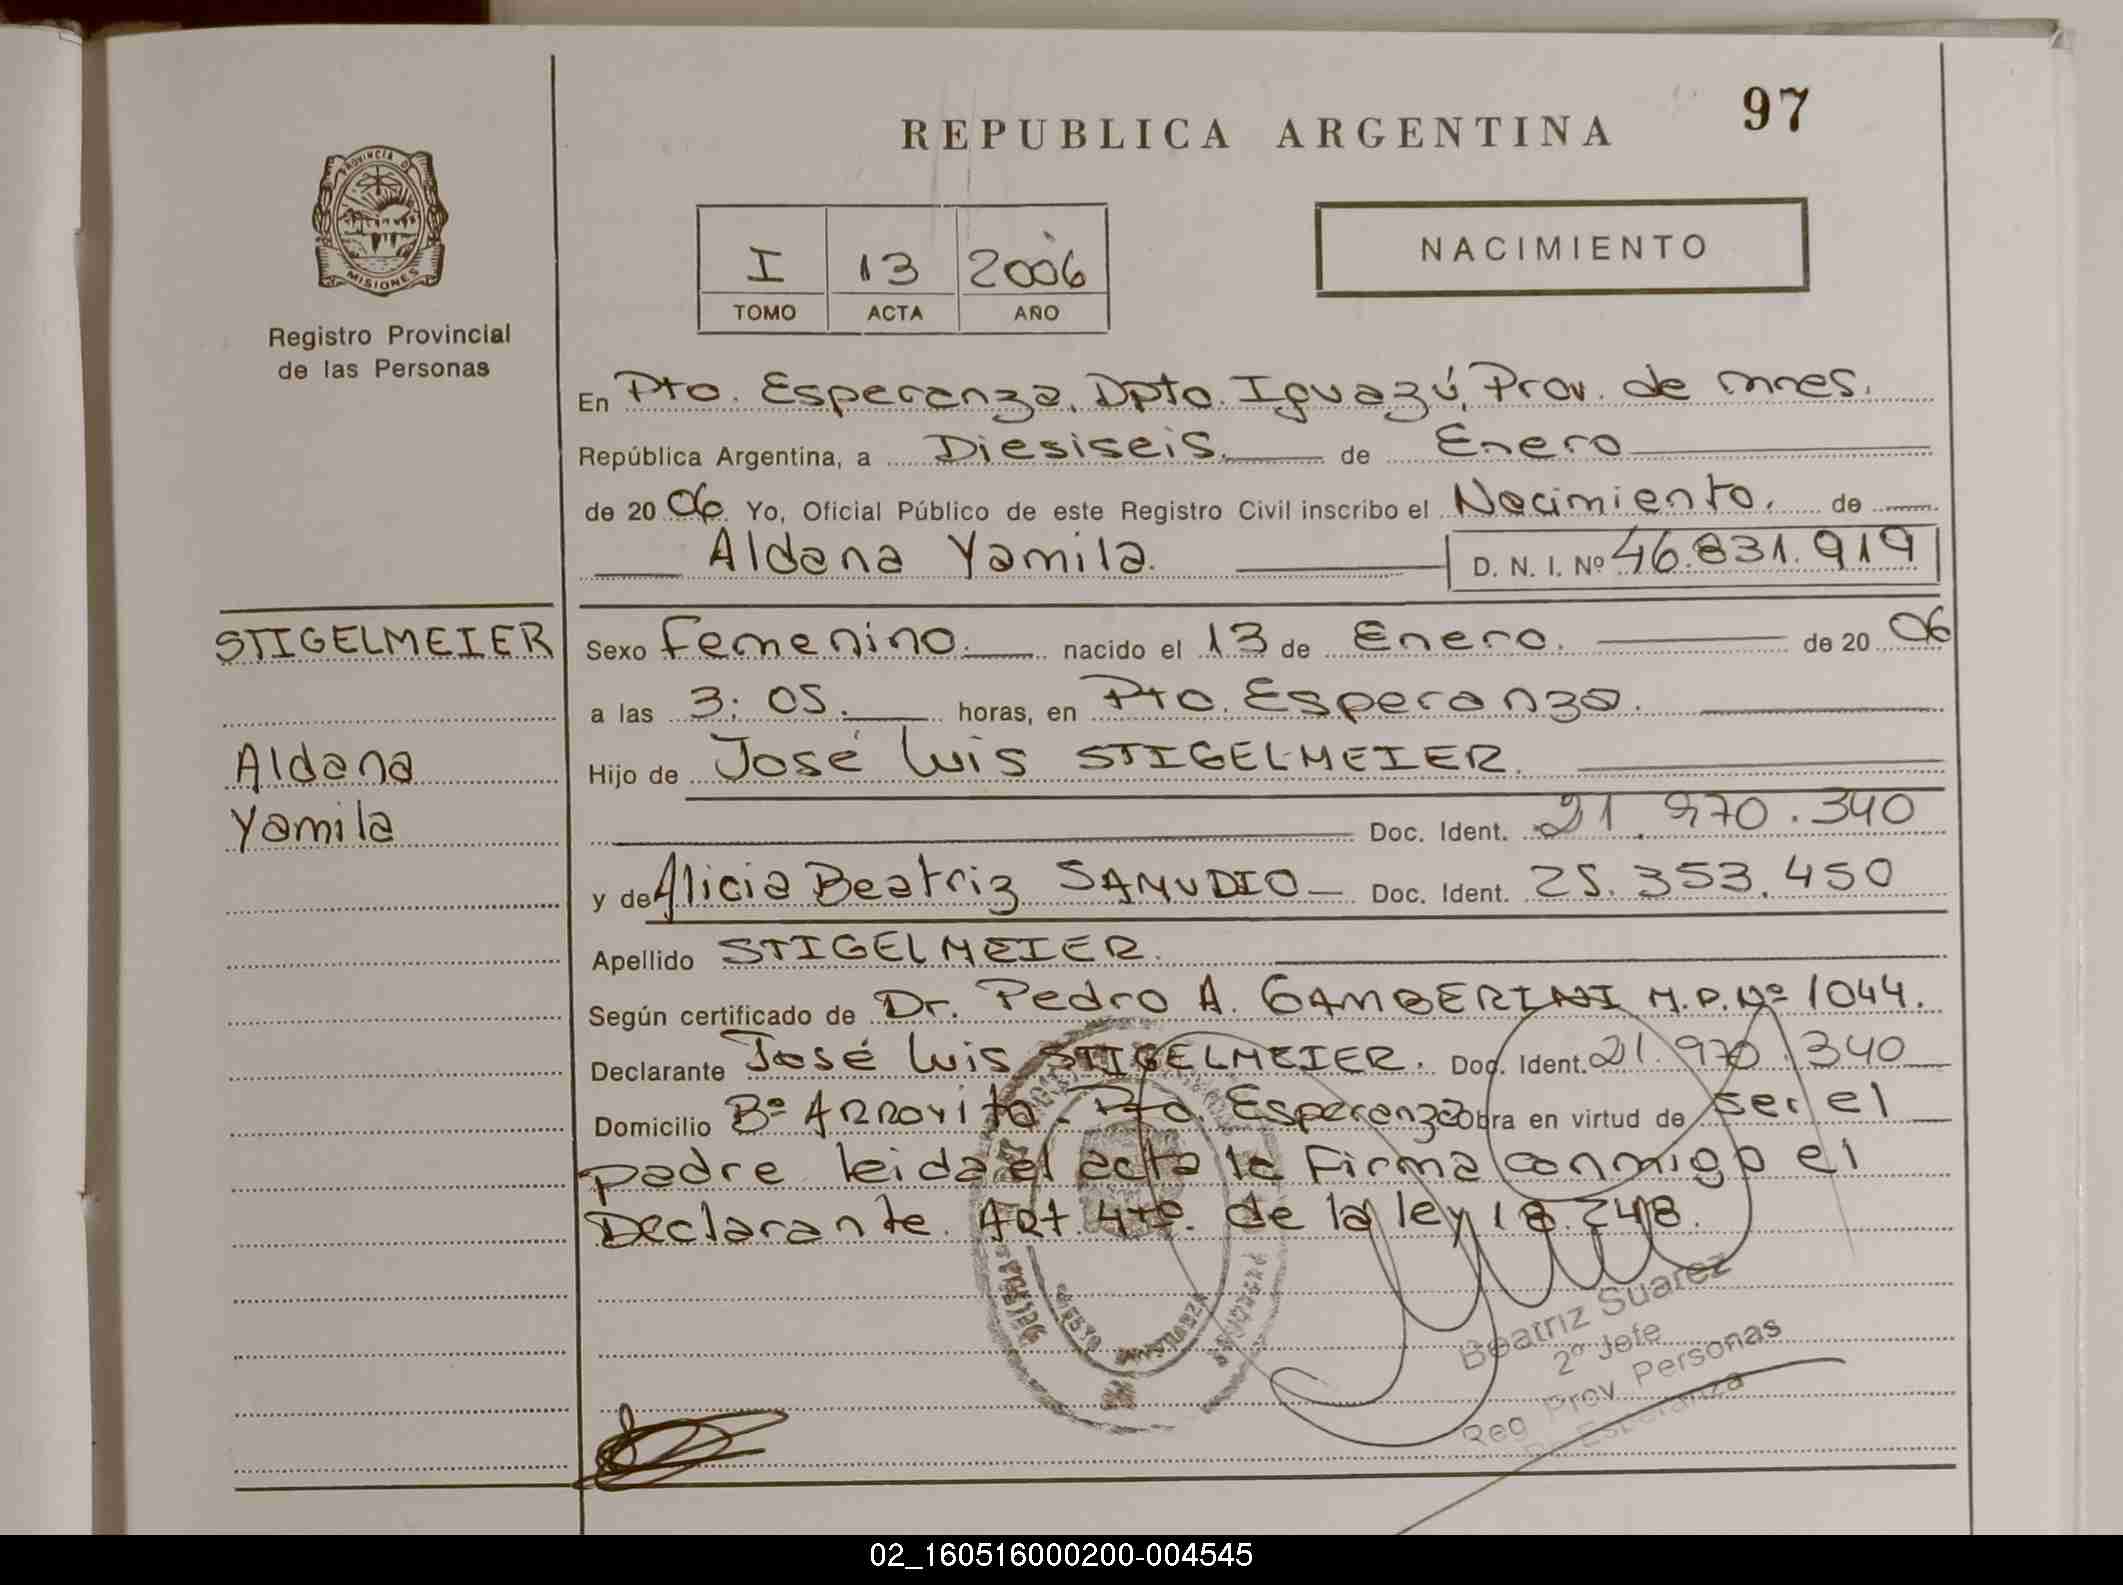 REPUBLICA ARGENTINA
97
PROVINCIA DE
MISIONES
Registro Provincial
de las Personas
I 13 2006
TOMO ACTA AÑO
NACIMIENTO
En Pto. Esperanza, Dpto. Iguazú, Prov. de mnes.
República Argentina, a Diesiseis. de Enero
de 20 06 Yo, Oficial Público de este Registro Civil inscribo el Nacimiento. de
Aldana Yamila. D. N. I. Nº 46.831.919
STIGELMEIER
Aldana
Yamila
Sexo Femenino. nacido el 13 de Enero. de 20 06
a las 3:05. horas, en Pto. Esperanza.
Hijo de José Luis STIGELMEIER.
Doc. Ident. 21.970.340
y de Alicia Beatriz SAMUDIO Doc. Ident. 25.353.450
Apellido STIGELMEIER.
Según certificado de Dr. Pedro A. GAMBERINI M.P.Nº 1044.
Declarante José Luis STIGELMEIER. Doc. Ident. 21.970.340
Domicilio Bº ARROYito. Pto. Esperanza Obra en virtud de ser el
padre leida el acta la Firma conmigo el
Declarante. ART. 4to. de la ley 18.248.
Beatriz Suarez
2º Jefe
Reg Prov Personas
Esperanza
02_160516000200-004545